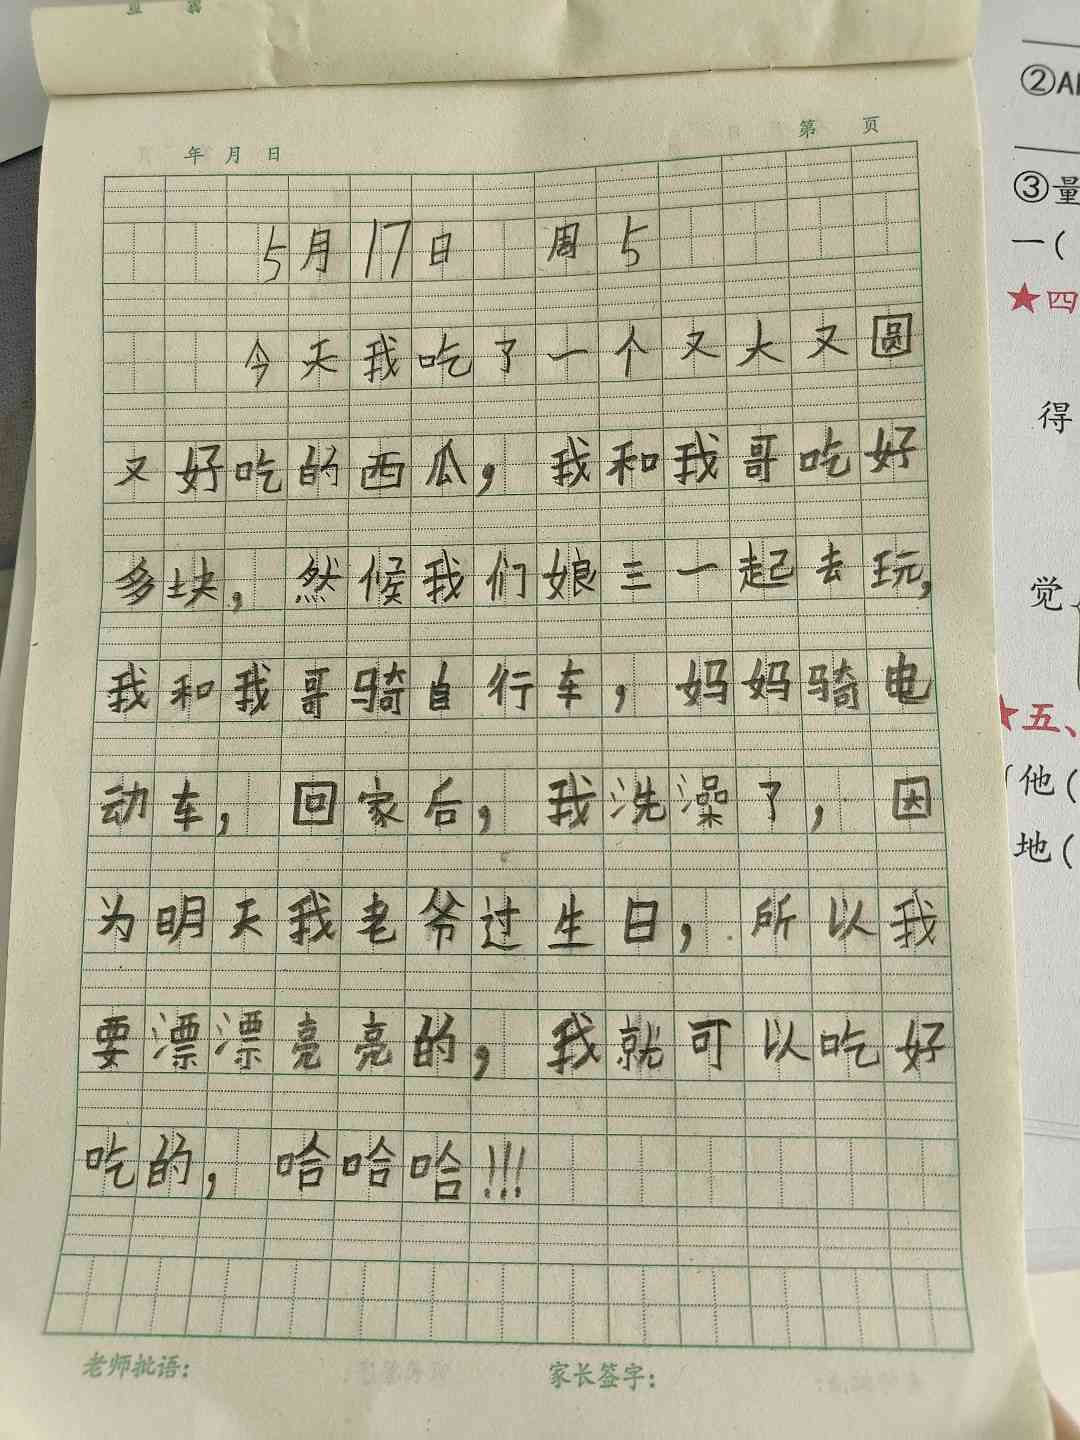 第 页
年 月 日
第 页
5月17日 周5
今天我吃了一个又大又圆
又好吃的西瓜，我和我哥吃好
多块，然候我们娘三一起去玩，
我和我哥骑自行车，妈妈骑电
动车，回家后，我洗澡了，因
为明天我老爷过生日，所以我
要漂漂亮亮的，我就可以吃好
吃的，哈哈哈!!!
老师批语：
家长签字：
②
③量
一(
★四
得
觉
★五、
他(
地(